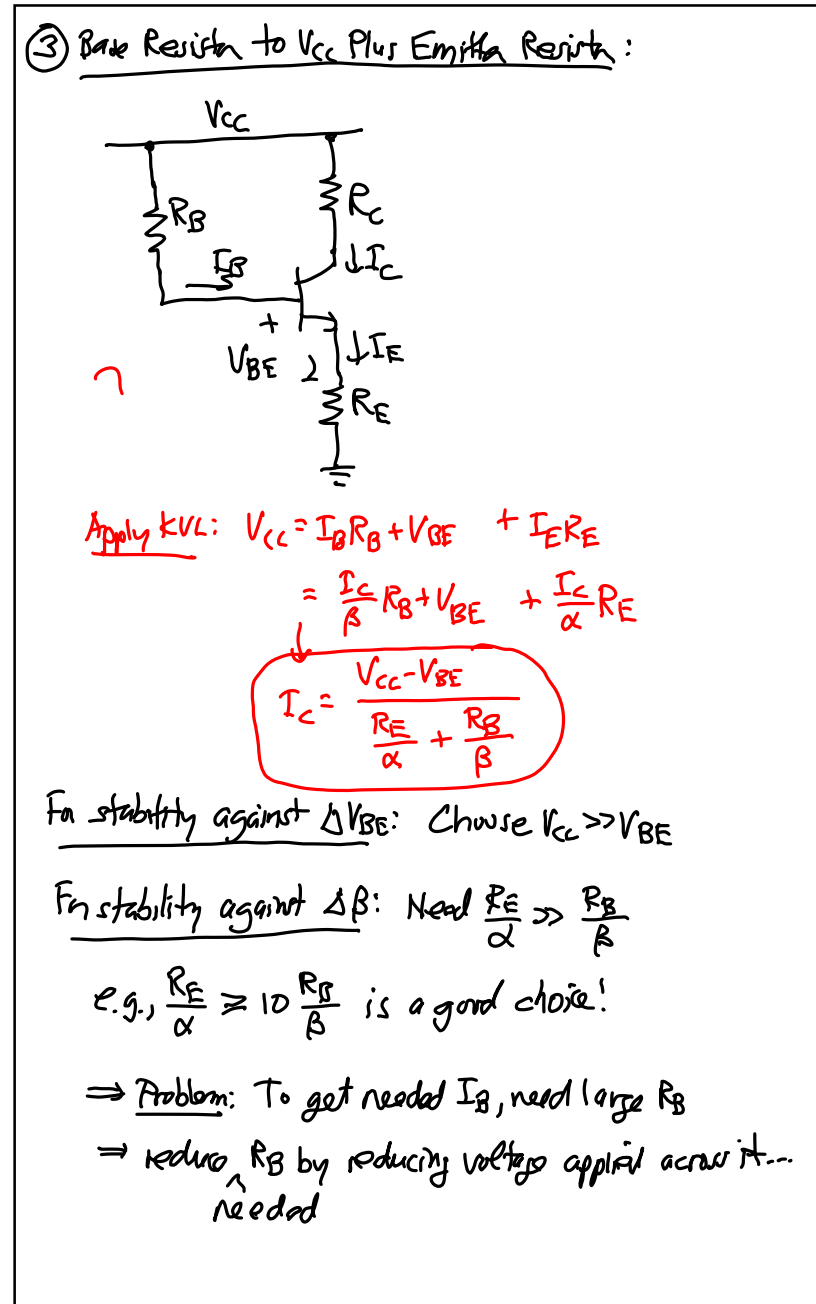 ③ Base Resistor to V_CC Plus Emitter Resistor:
V_CC
R_B
R_C
I_B
↓I_C
+
V_BE
↓I_E
R_E
Apply KVL: V_CC = I_B R_B + V_BE + I_E R_E
= I_C/β R_B + V_BE + I_C/α R_E
↓
I_C = (V_CC - V_BE) / (R_E/α + R_B/β)
For stability against ΔV_BE: Choose V_CC >> V_BE
For stability against Δβ: Need R_E/α >> R_B/β
e.g., R_E/α ≥ 10 R_B/β is a good choice!
⇒ Problem: To get needed I_B, need large R_B
⇒ reduce ^ R_B by reducing voltage applied across it...
needed